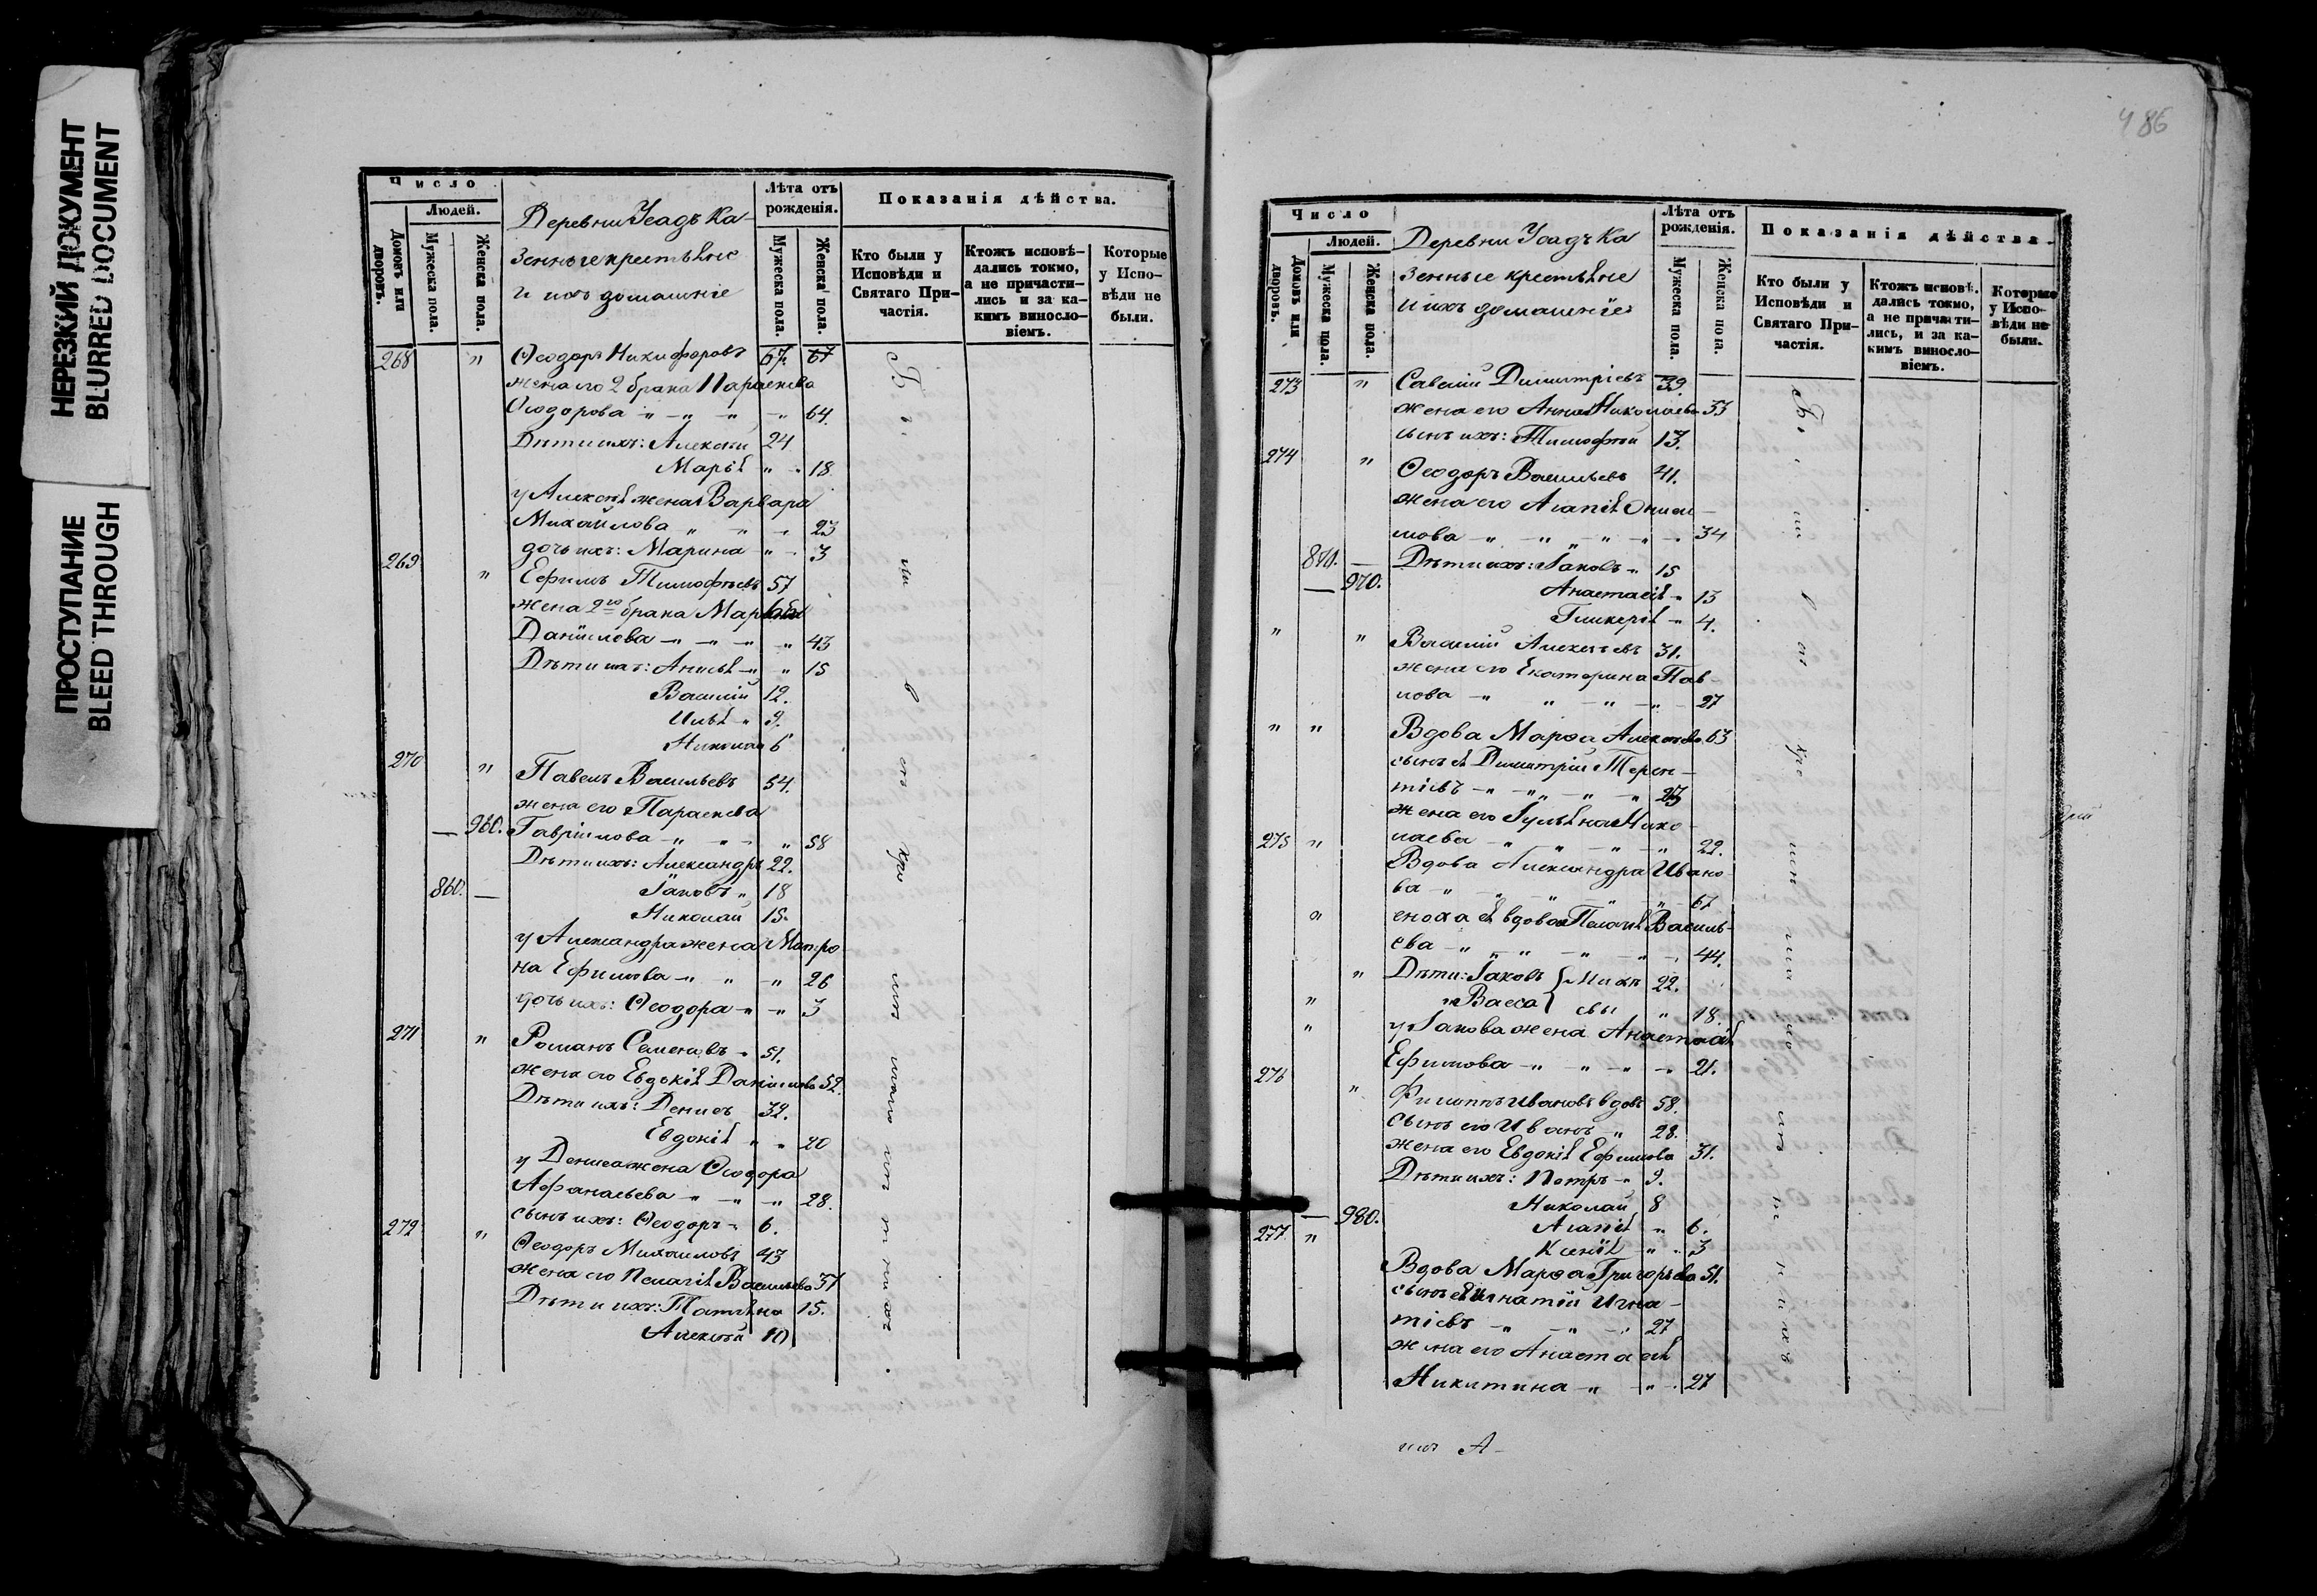 НЕРЕЗКИЙ ДОКУМЕНТ
BLURRED DOCUMENT
ПРОСТУПАНИЕ
BLEED THROUGH
Число
Людей.
Домовъ или дворовъ.
Мужеска пола.
Женска пола.
Деревни Усадъ Ка-
зенные крестьяне
и ихъ домашніе
Лѣта отъ рожденія.
Мужеска пола.
Женска пола.
Показанія дѣйства.
Кто были у Исповѣди и Святаго Причастія.
Ктожъ исповѣ-
дались токмо,
а не причасти-
лись и за ка-
кимъ виносло-
віемъ.
Которые
у Испо-
вѣди не
были.
268 " Ѳеодоръ Никифоровъ 67. 67
жена его 2 брака Параскева
Ѳеодорова " " " " 64.
Дѣти ихъ: Алексѣй 24
Марія " " 18
у Алексѣя жена Варвара
Михайлова " " " 23
дочь ихъ: Марина " " 3
269 " Ефимъ Тимофѣевъ 57
жена 2го брака Марѳа
Даніилова " " " " 43
Дѣти ихъ: Анисья " " 15
Василій 12.
Илья " 9.
Николай 6
270 " Павелъ Васильевъ 54.
жена его Параскева
— 960. Гавріилова " " " " 58
Дѣти ихъ: Александръ 22.
860. — Іаковъ " 18
Николай 15.
у Александра жена Матро
на Ефимова " " " 26
дочь ихъ: Ѳеодора " " 3
271 " Романъ Семеновъ " 51.
жена его Евдокія Даніилова 52.
Дѣти ихъ: Денисъ 32.
Евдокія " " 20
у Дениса жена Ѳеодора
Афанасьева " " " 28.
сынъ ихъ: Ѳеодоръ " 6.
272 " Ѳеодоръ Михаиловъ 43
жена его Пелагія Васильева 37
Дѣти ихъ: Татьяна 15.
Алексѣй 10
486
Число
Людей.
Домовъ или дворовъ.
Мужеска пола.
Женска пола.
Деревни Усадъ Ка
зенные крестьяне
и ихъ домашніе
Лѣта отъ рожденія.
Мужеска пола.
Женска пола.
Показанія дѣйства.
Кто были у
Исповѣди и
Святаго При-
частія.
Ктожъ исповѣ-
дались токмо,
а не причасти-
лись, и за ка-
кимъ виносло-
віемъ.
Которые
у Испо-
вѣди не
были.
273 " Савелій Димитріевъ 39.
жена его Анна Николаева 33
сынъ ихъ: Тимофѣй 13.
274 " Ѳеодоръ Васильевъ 41.
жена его АгапіяОниси-
мова " " " " " 34
870. — Дѣти ихъ: Іаковъ " 15
— 970. Анастасія " 13
Гликерія " 4.
" " Василій Алексѣевъ 31.
жена его Екатерина Пав-
лова " " " " 27
" " Вдова Марѳа Алексѣева 63
сынъ ея Димитрій Терен-
тіевъ " " " " 23
жена его Іуліяна Нико-
275 " лаева " " " " 22.
Вдова Александра Ивано-
ва " " " " 67
" сноха ея вдова Пелагія Василь-
ева " " " " " 44.
" Дѣти: Іаковъ Михѣ 22.
" Васса евы " 18.
" у Іакова жена Анастасія
Ефимова " " " " 21.
276 " Филиппъ Ивановъ вдовъ 58.
сынъ его Иванъ " 28.
жена его Евдокія Ефимова 31.
Дѣти ихъ: Петръ " 9.
Николай 8
— 980. Агапія " 6.
277 " Ксенія " " 3
Вдова Марѳа Григорьева 51.
сынъ ея Игнатій Игна-
тіевъ " " " 27
жена его Анастасія
Никитина " " " 27